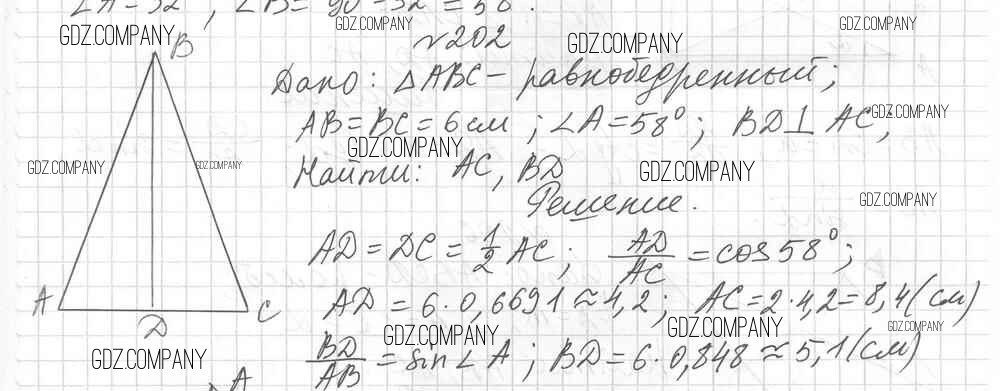 ∠A=32°, ∠B=90°-32°=58°.
GDZ.COMPANY GDZ.COMPANY GDZ.COMPANY
B №202 GDZ.COMPANY
Дано: △ABC – равнобедренный;
AB=BC=6см; ∠A=58°; BD⊥AC,
GDZ.COMPANY
GDZ.COMPANY
GDZ.COMPANY GDZ.COMPANY GDZ.COMPANY
Найти: AC, BD
Решение.
GDZ.COMPANY
AD=DC=1/2 AC; AD/AC=cos58°;
A D C
AD=6·0,6691≈4,2; AC=2·4,2=8,4(см)
GDZ.COMPANY GDZ.COMPANY GDZ.COMPANY
BD/AB=sin∠A; BD=6·0,848≈5,1(см)
GDZ.COMPANY
A